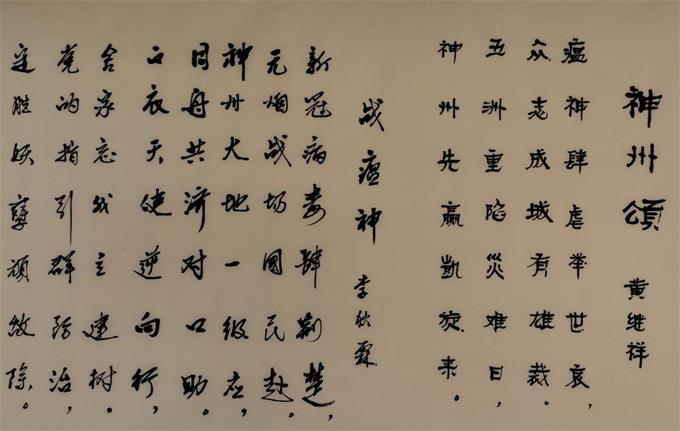 神州頌 黄继祥
瘟神肆虐举世哀，
众志成城有雄裁。
五洲重陷災难日，
神州先赢凱旋来。
战瘟神 李秋霖
新冠病毒肆荆楚，
无烟战场國民赴。
神州大地一级应，
同舟共济对口助。
白衣天使逆向行，
舍家忘我立建树。
党的指引群防治，
定胜妖孽顽敌除。